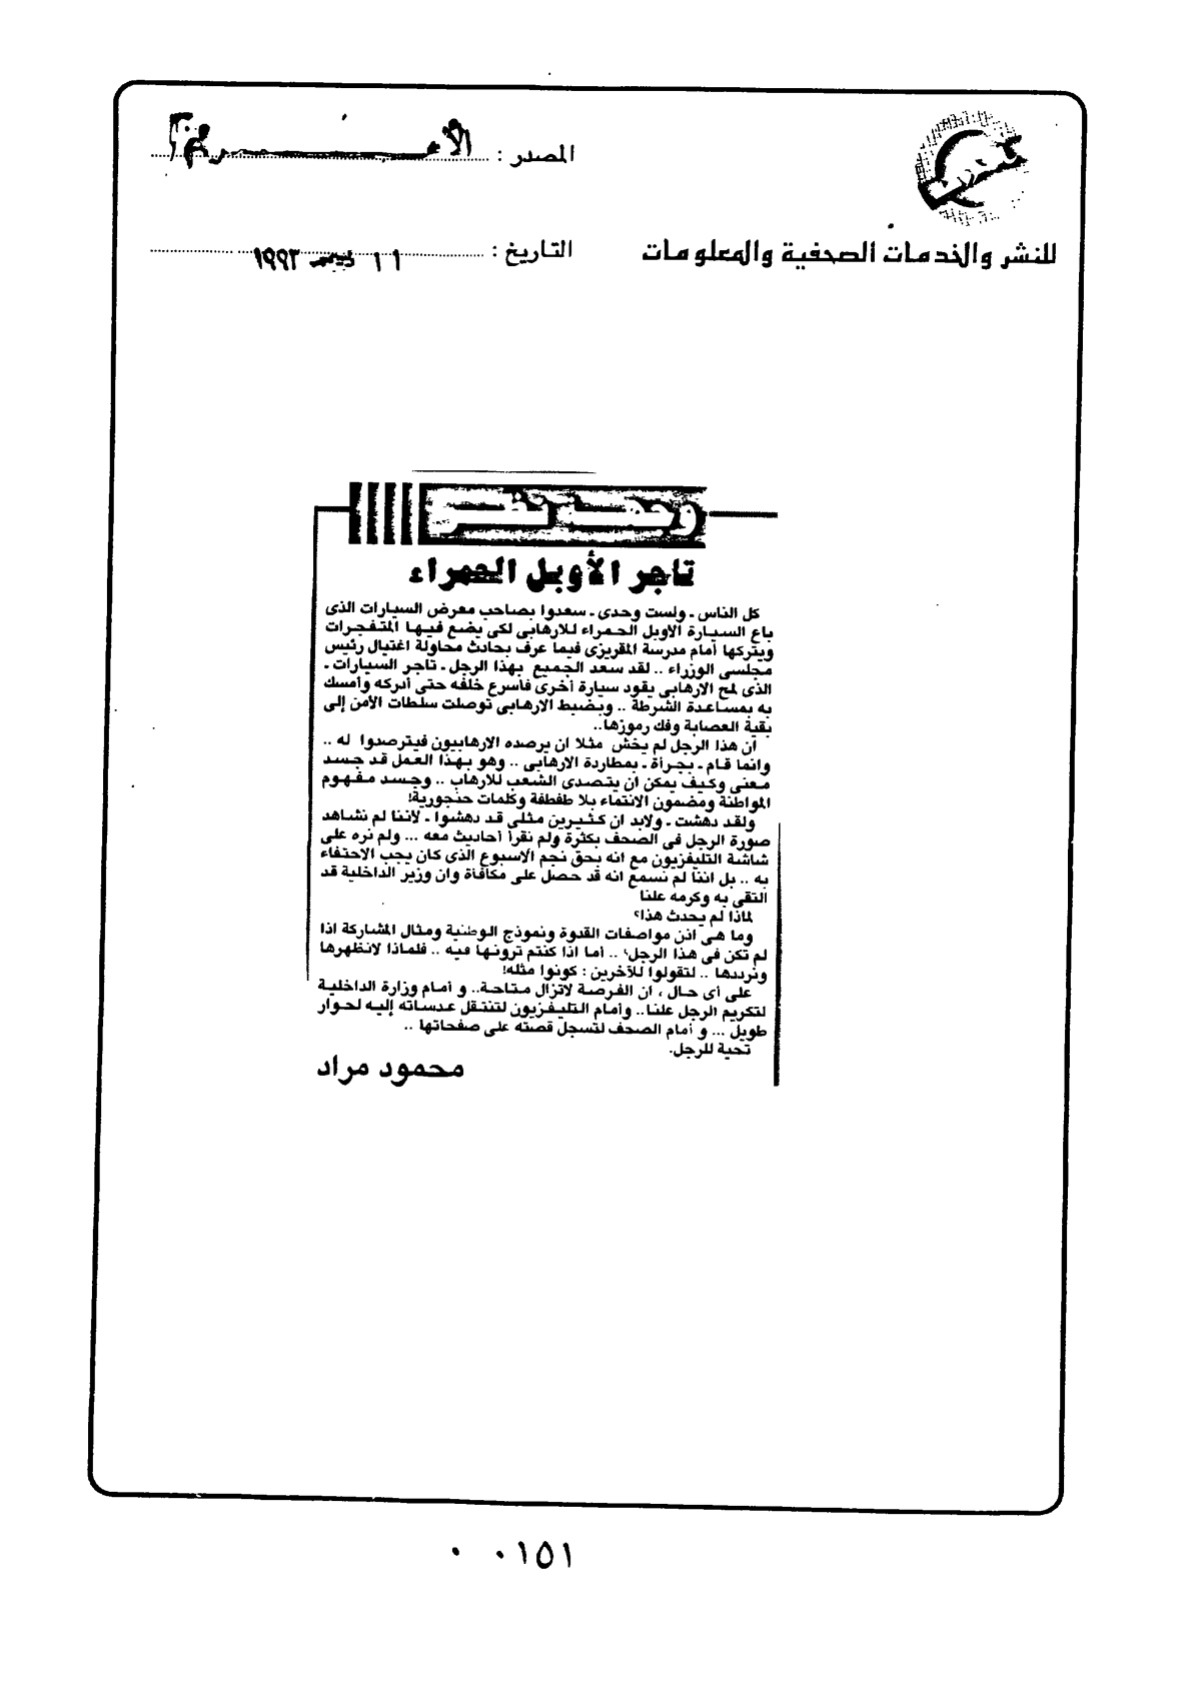 المصدر : الأهـــرام
للنشر والخدمات الصحفية والمعلومات
التاريخ : ١١ ديسمبر ١٩٩٣
وجهة نظر
تاجر الأوبل الحمراء
كل الناس ـ ولست وحدى ـ سعدوا بصاحب معرض السيارات الذى
باع السيارة الاوبل الحمراء للارهابى لكى يضع فيها المتفجرات
ويتركها أمام مدرسة المقريزى فيما عرف بحادث محاولة اغتيال رئيس
مجلسى الوزراء .. لقد سعد الجميع بهذا الرجل ـ تاجر السيارات ـ
الذى لمح الارهابى يقود سيارة أخرى فأسرع خلفه حتى أدركه وأمسك
به بمساعدة الشرطة .. وبضبط الارهابى توصلت سلطات الأمن إلى
بقية العصابة وفك رموزها..
ان هذا الرجل لم يخش مثلا ان يرصده الارهابيون فيترصدوا له ..
وانما قام ـ بجرأة ـ بمطاردة الارهابى .. وهو بهذا العمل قد جسد
معنى وكيف يمكن ان يتصدى الشعب للارهاب .. وجسد مفهوم
المواطنة ومضمون الانتماء بلا طقطقة وكلمات حنجورية!
ولقد دهشت ـ ولابد ان كثيرين مثلى قد دهشوا ـ لاننا لم نشاهد
صورة الرجل فى الصحف بكثرة ولم نقرأ أحاديث معه ... ولم نره على
شاشة التليفزيون مع انه بحق نجم الاسبوع الذى كان يجب الاحتفاء
به .. بل اننا لم نسمع انه قد حصل على مكافأة وان وزير الداخلية قد
التقى به وكرمه علنا
لماذا لم يحدث هذا؟
وما هى اذن مواصفات القدوة ونموذج الوطنية ومثال المشاركة اذا
لم تكن فى هذا الرجل؟ .. أما اذا كنتم ترونها فيه .. فلماذا لانظهرها
ونرددها .. لتقولوا للآخرين : كونوا مثله!
على أى حال ، ان الفرصة لاتزال متاحة.. و أمام وزارة الداخلية
لتكريم الرجل علنا.. وأمام التليفزيون لتنتقل عدساته إليه لحوار
طويل ... و أمام الصحف لتسجل قصته على صفحاتها ..
تحية للرجل.
محمود مراد
٠ ٠١٥١